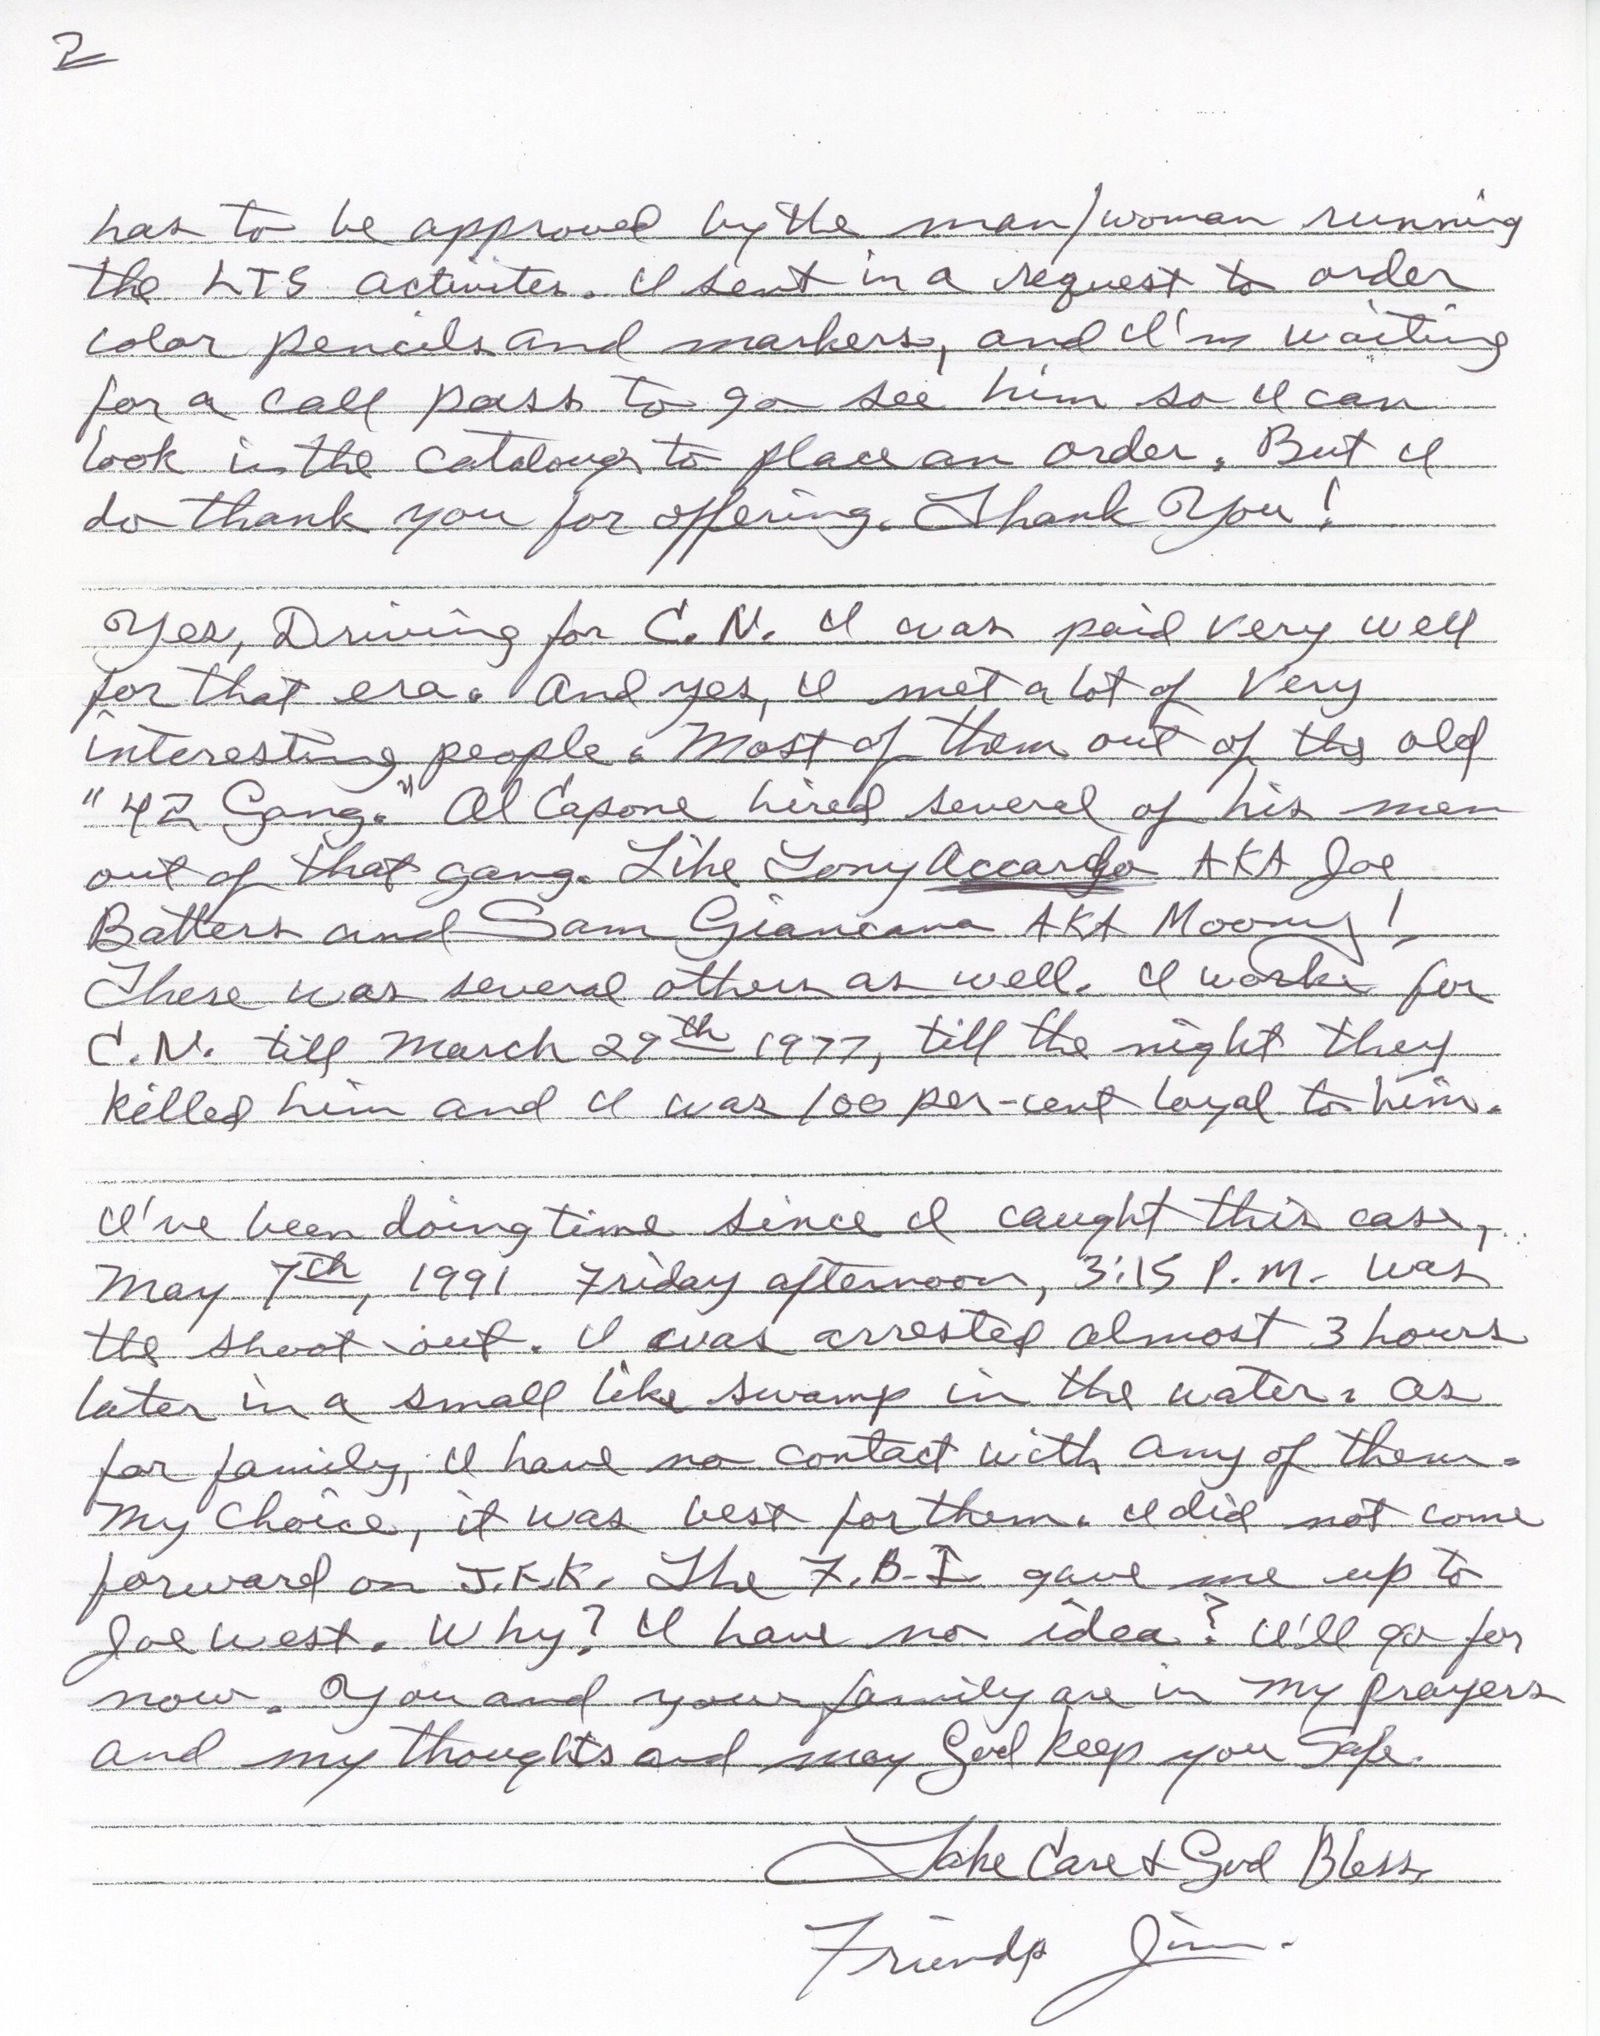 2
has to be approved by the man/woman running
the LTS activites. I sent in a request to order
color pencils and markers, and I'm waiting
for a call pass to go see him so I can
look in the catalougs to place an order. But I
do thank you for offering. Thank You!
Yes, Driving for C.N. I was paid very well
for that era. And yes, I met a lot of very
interesting people. Most of them out of the old
"42 Gang." Al Capone hired several of his men
out of that gang. Like Tony Accardo AKA Joe
Batters and Sam Giancana AKA Moony!
There was several others as well. I worke for
C.N. till March 29th 1977, till the night they
killed him and I was 100 per-cent loyal to him.
I've been doing time since I caught this case,
May 7th, 1991 Friday afternoon, 3:15 P.M. was
the shoot out. I was arrested almost 3 hours
later in a small like swamp in the water. As
for family, I have no contact with any of them.
My choice, it was best for them. I did not come
forward on J.F.K. The F.B.I. gave me up to
Joe West. Why? I have no idea? I'll go for
now. You and your family are in my prayers
and my thoughts and may God keep you safe.
Take Care & God Bless,
Friends Jim.